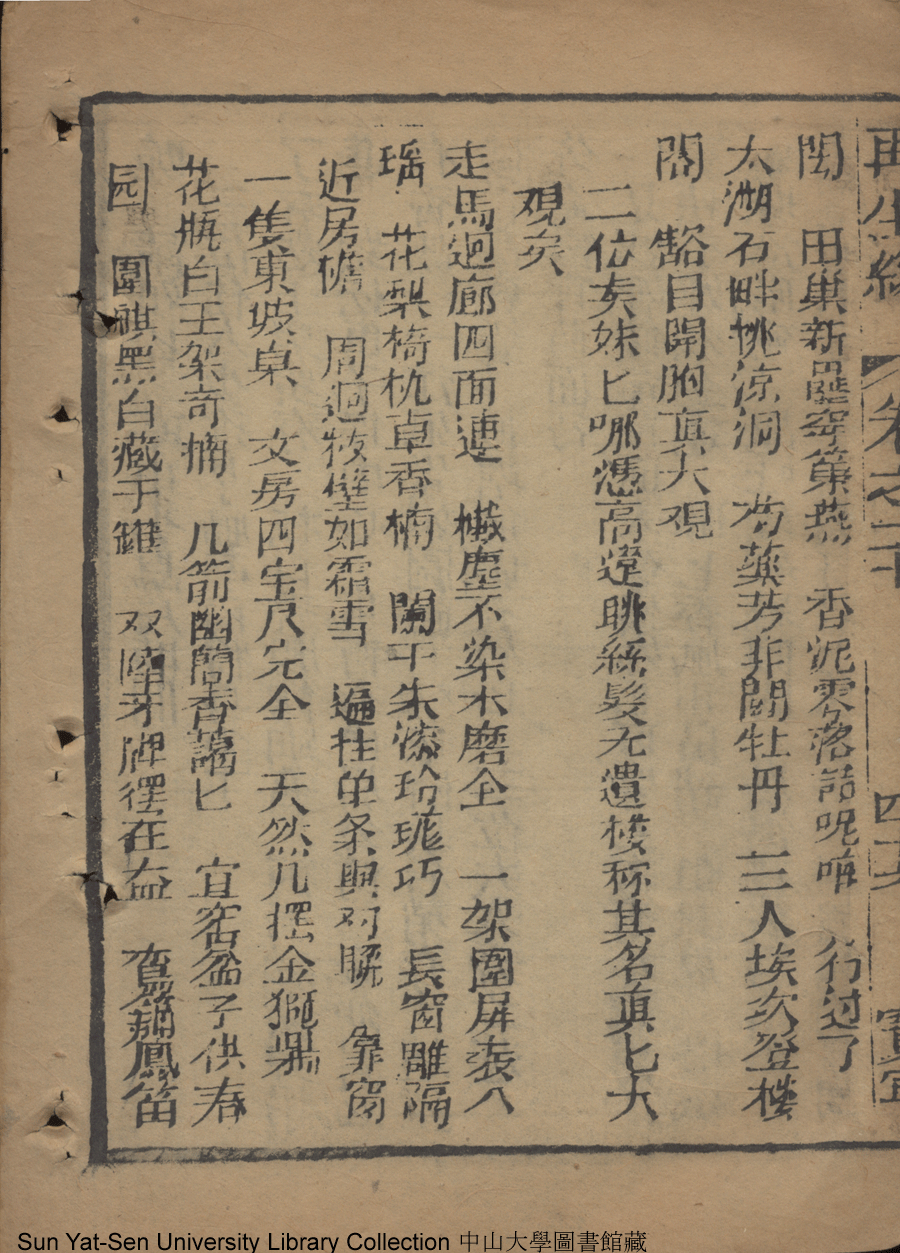 再生緣 卷之十 四十六 寶寧
閑 田巢新壘穿簾燕 香泥零落話呢喃 行过了
太湖石畔桃涼洞 芍藥芳菲闘牡丹 三人埃次登楼
閣 豁目開胸真大观
二位贤妹匕哪憑高遠眺絲髮无遺楼称其名真匕大
观矣
走馬迴廊四面連 纎塵不染水磨全 一架圍屏裝八
瑤 花梨椅杌桌香楠 闌干朱漆玲瓏巧 長窗雕隔
近房檐 周迴板壁如霜雪 遍柱单条與对聯 靠窗
一隻東坡桌 文房四宝尺完全 天然几摆金獅鼎
花瓶白玉架奇楠 几箭幽蘭香藹匕 宜窑盆子供春
园 圍祺黑白藏于罐 双陸牙牌擺在盘 鸞簫鳳笛
Sun Yat-Sen University Library Collection 中山大學圖書館藏